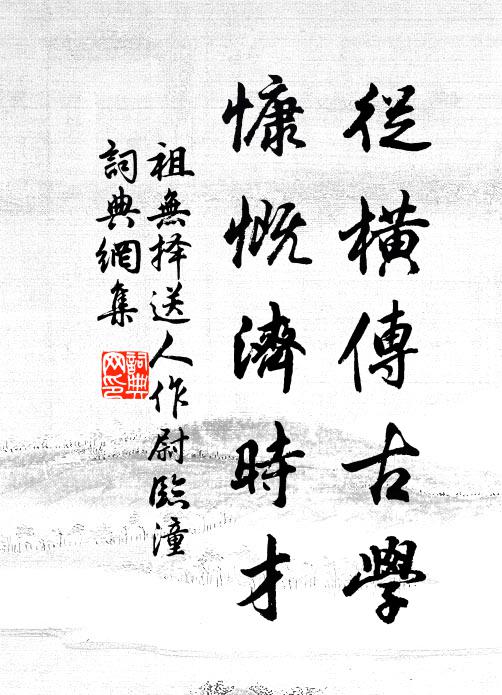 從橫傳古學
慷慨濟時才
祖無择送人作尉臨潼
詞典網集
詞典網印